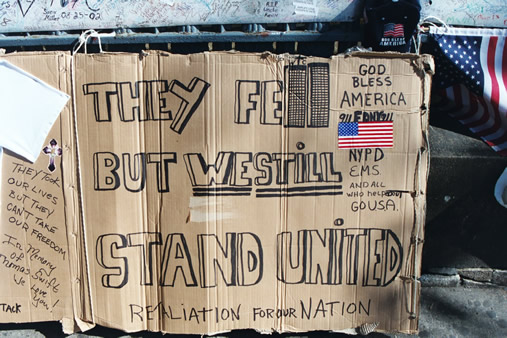 OCT 23-02
R.I.P
GOD BLESS
AMERICA
THEY FELL
BUT WE STILL
STAND UNITED
RETALIATION FOR OUR NATION
GOD
BLESS
AMERICA
911 FDNY
NYPD
EMS.
AND ALL
WHO HELPED
GO USA.
THEY TOOK
OUR LIVES
BUT THEY
CAN'T TAKE
OUR FREEDOM
In Memory
of
Thomas Swift
We Love
You!
TACK